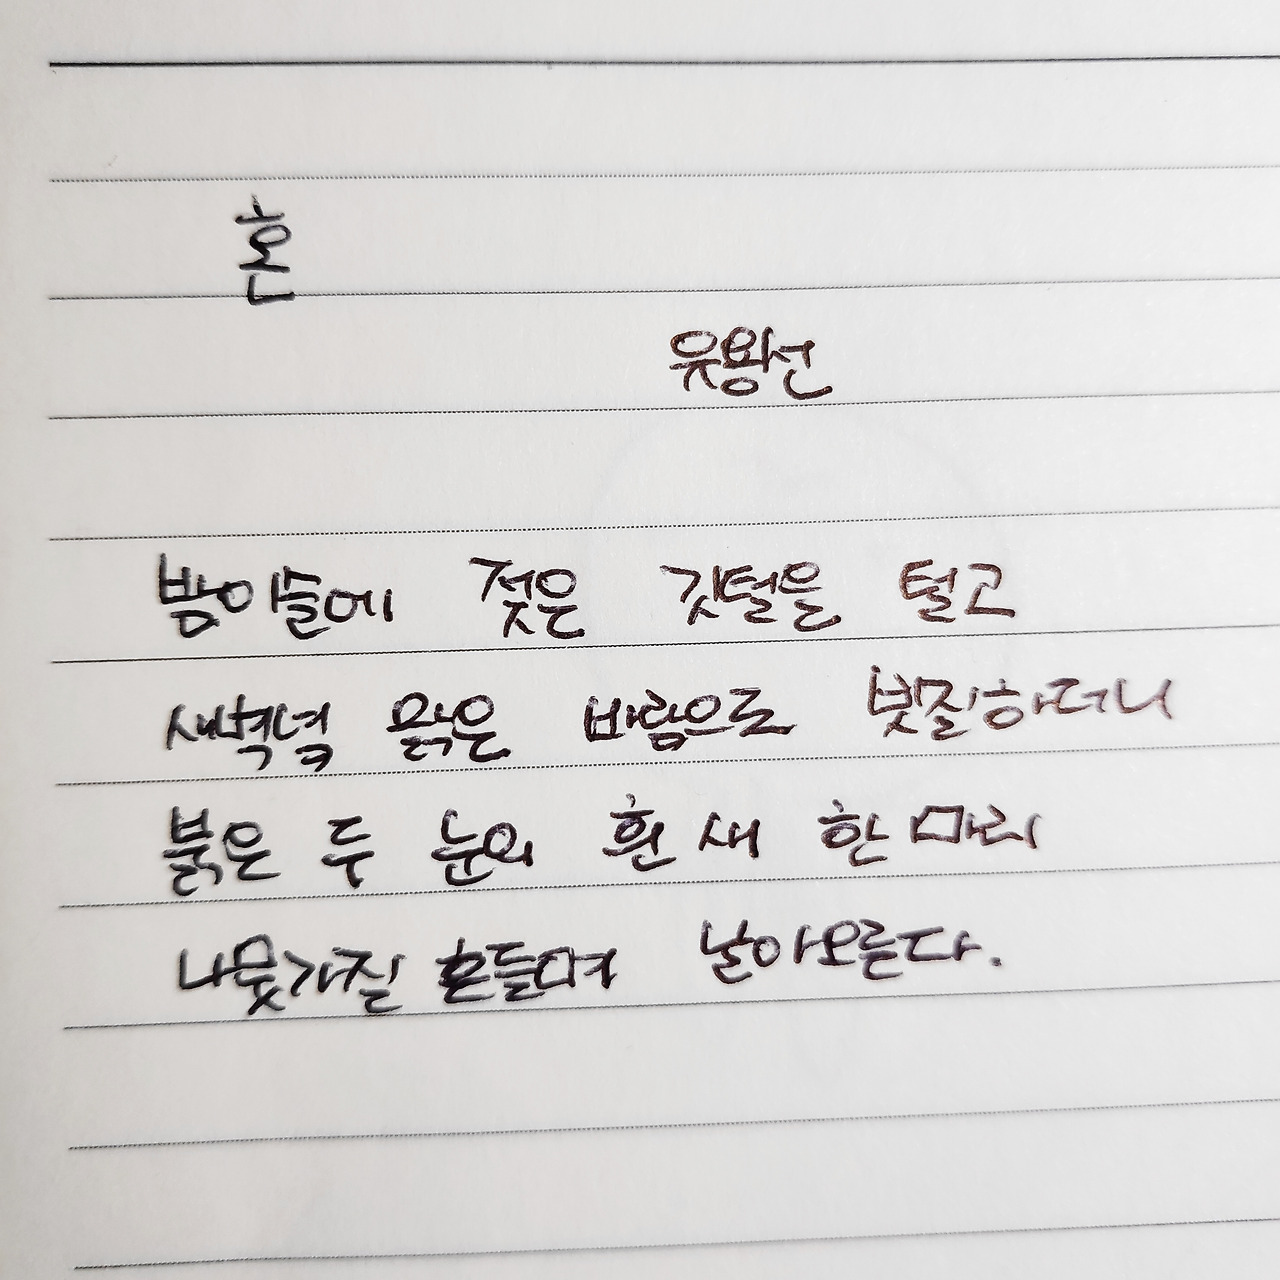 혼
유용선
밤이슬에 젖은 깃털을 털고
새벽녘 맑은 바람으로 빗질하더니
붉은 두 눈의 흰 새 한 마리
나뭇가질 흔들며 날아오른다.